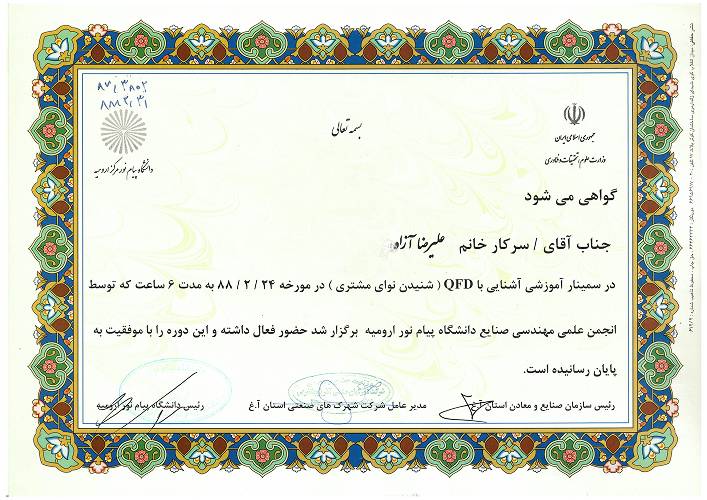 بسمه تعالی
جمهوری اسلامی ایران
وزارت علوم، تحقیقات و فناوری
۸۷/۳۸۰۲
۸۸/۲/۳۱
دانشگاه پیام نور مرکز ارومیه
گواهی می شود
جناب آقای / سرکار خانم علیرضا آزاد
در سمینار آموزشی آشنایی با QFD ( شنیدن نوای مشتری ) در مورخه ۲۴ / ۲ / ۸۸ به مدت ۶ ساعت که توسط
انجمن علمی مهندسی صنایع دانشگاه پیام نور ارومیه برگزار شد حضور فعال داشته و این دوره را با موفقیت به
پایان رسانیده است.
رئیس سازمان صنایع و معادن استان آ.غ
مدیر عامل شرکت شهرک های صنعتی استان آ.غ
رئیس دانشگاه پیام نور ارومیه